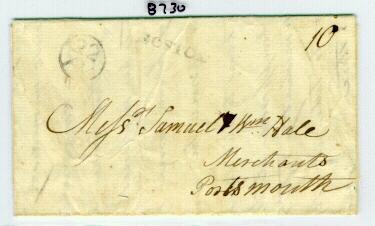 B730
BOSTON
10
Mess.rs Samuel & Wm Hale
Merchants
Portsmouth